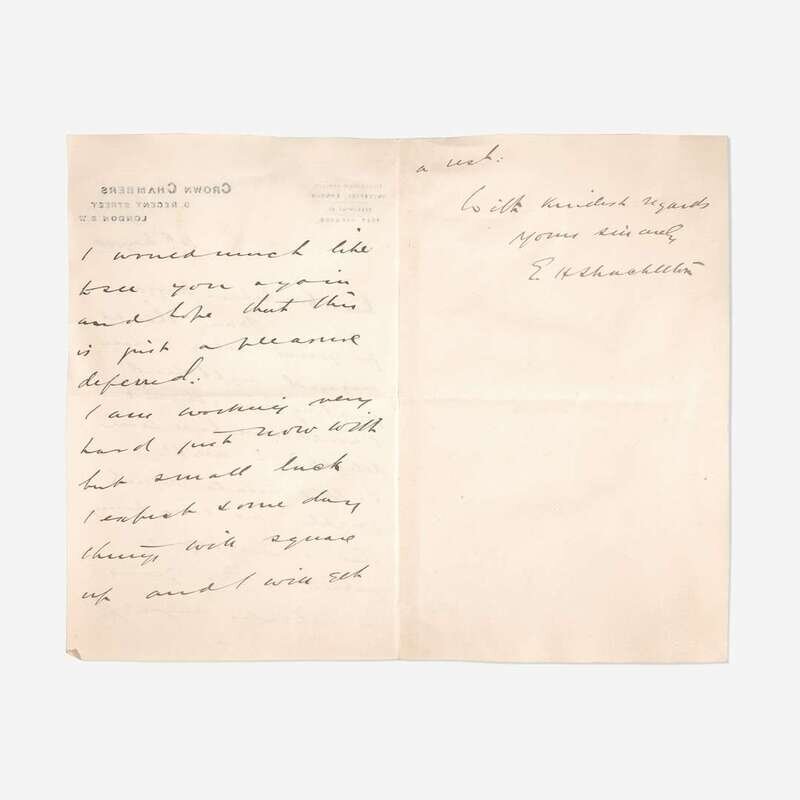 CROWN CHAMBERS
9, REGENT STREET
LONDON S.W.
I would much like
to see you again
and hope that this
is just a pleasure
deferred:
I am working very
hard just now with
but small luck
I expect some day
things will square
up and I will get
a rest:
With kindest regards
Yours sincerely
E H Shackleton